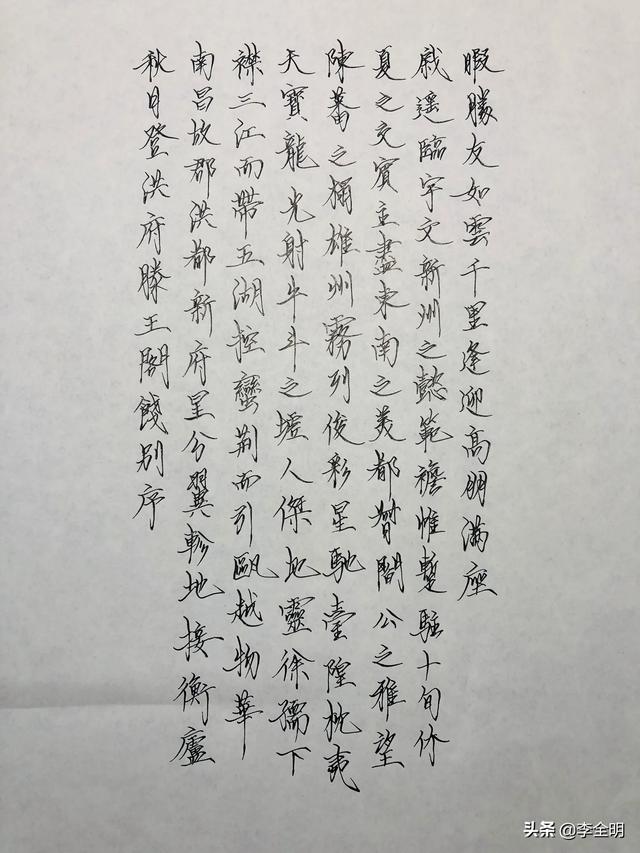 秋日登洪府滕王閣餞別序
南昌故郡洪都新府星分翼軫地接衡廬
襟三江而帶五湖控蠻荊而引甌越物華
天寶龍光射牛斗之墟人傑地靈徐孺下
陳蕃之榻雄州霧列俊彩星馳臺隍枕夷
夏之交賓主盡東南之美都督閻公之雅望
戚遙臨宇文新州之懿範襜帷暫駐十旬休
暇勝友如雲千里逢迎高朋滿座
头条 @李全明